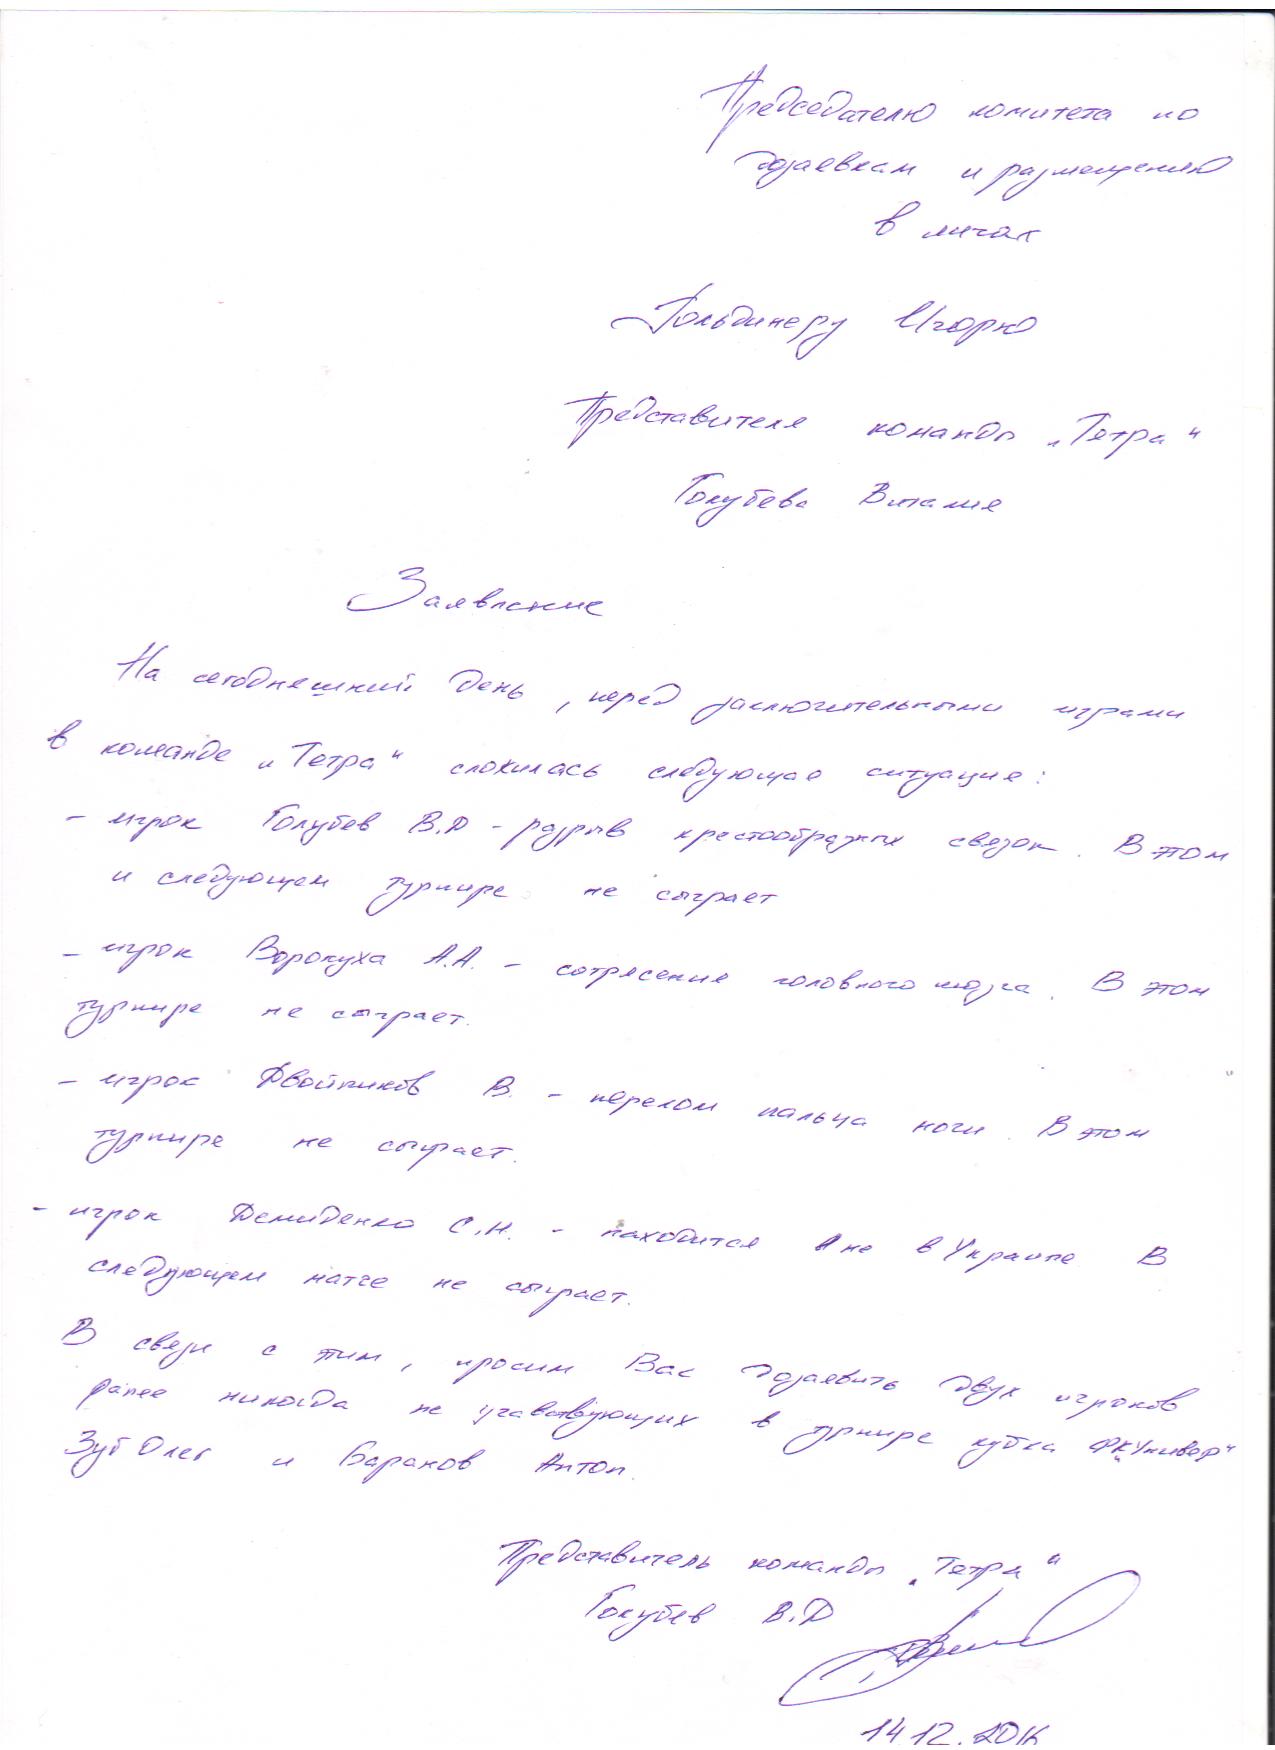 Председателю комитета по
дозаявкам и размещению
в лигах
Гольдинеру Игорю
Представителя команды „Тетра"
Голубева Виталия
Заявление
На сегодняшний день, перед заключительными играми
в команде „Тетра" сложилась следующая ситуация:
- игрок Голубев В.Д - разрыв крестообразных связок. В этом
и следующем турнире не сыграет
- игрок Ворокуха А.А. - сотрясение головного мозга. В этом
турнире не сыграет.
- игрок Двойников В. - перелом пальца ноги. В этом
турнире не сыграет.
- игрок Демиденко С.Н. - находится не в Украине В
следующем матче не сыграет.
В связи с этим, просим Вас дозаявить двух игроков
ранее никогда не учавствующих в турнире кубка ФК„Универ"
Зуб Олег и Баранов Антон.
Представитель команды „Тетра"
Голубев В.Д
14.12.2016